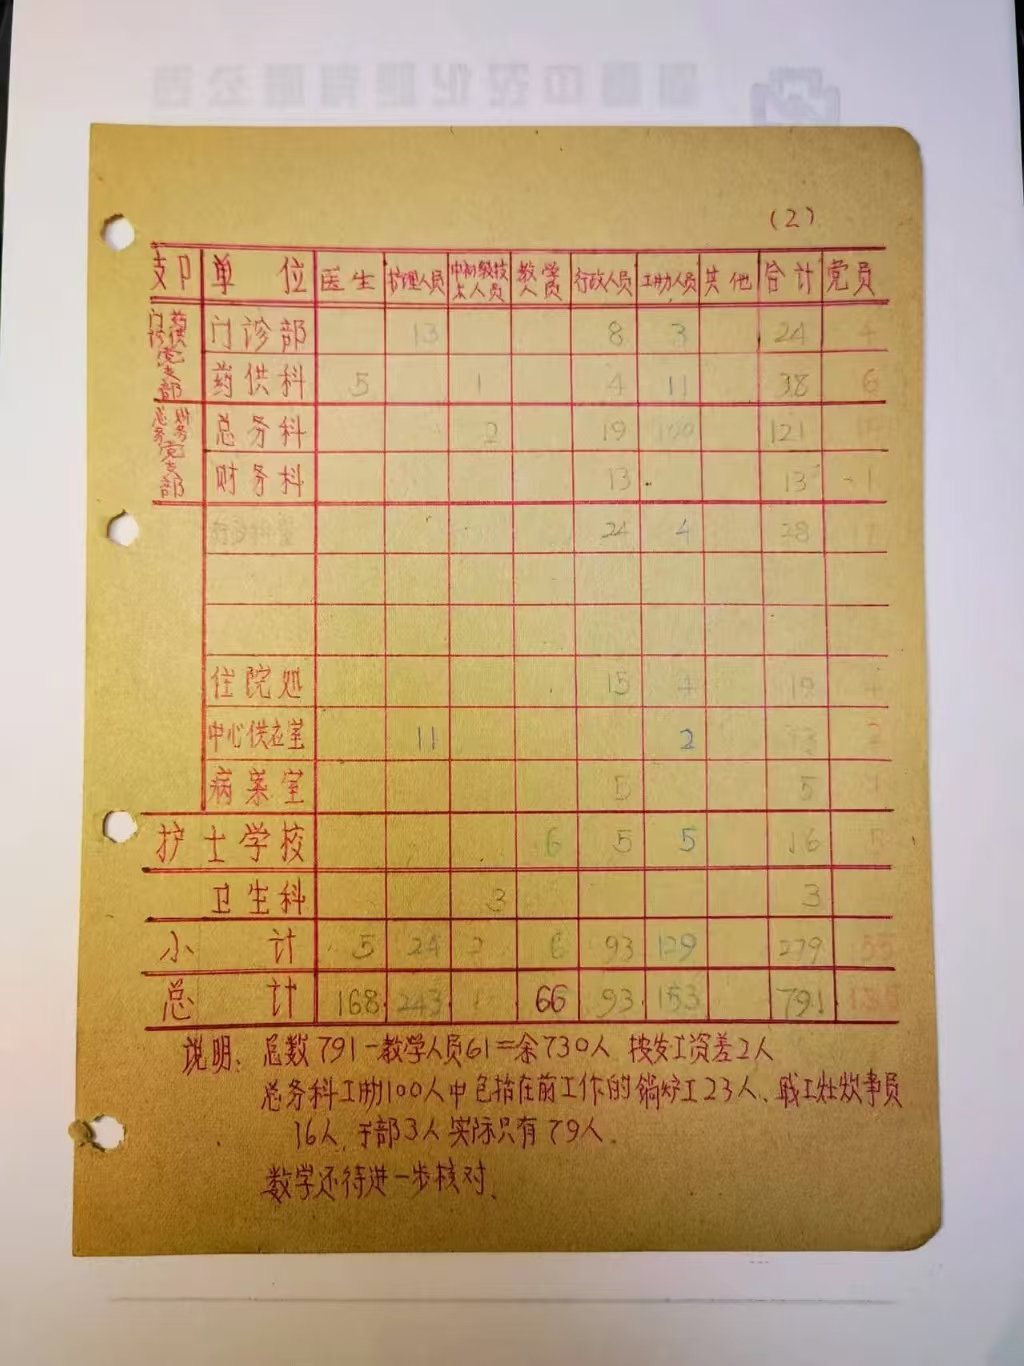 (2)
支卩 单位 医生 护理人员 中初级技术人员 教学人员 行政人员 工勤人员 其他 合计 党员
门诊药供党支部 门诊部 13 8 3 24
药供科 5 1 4 11 38 6
总务财务党支部 总务科 2 19 100 121
财务科 13 13 1
24 4 28
住院处 15 4 19
中心供应室 11 2 13 2
病案室 5 5
护士学校 6 5 5 16 5
卫生科 3 3
小计 5 24 6 93 129 279 55
总计 168 243 66 93 153 791
说明: 总数791-教学人员61=余730人 按发工资差2人
总务科工勤100人中包括在前工作的锅炉工23人、职工灶炊事员
16人, 干部3人 实际只有79人.
数学还待进一步核对.